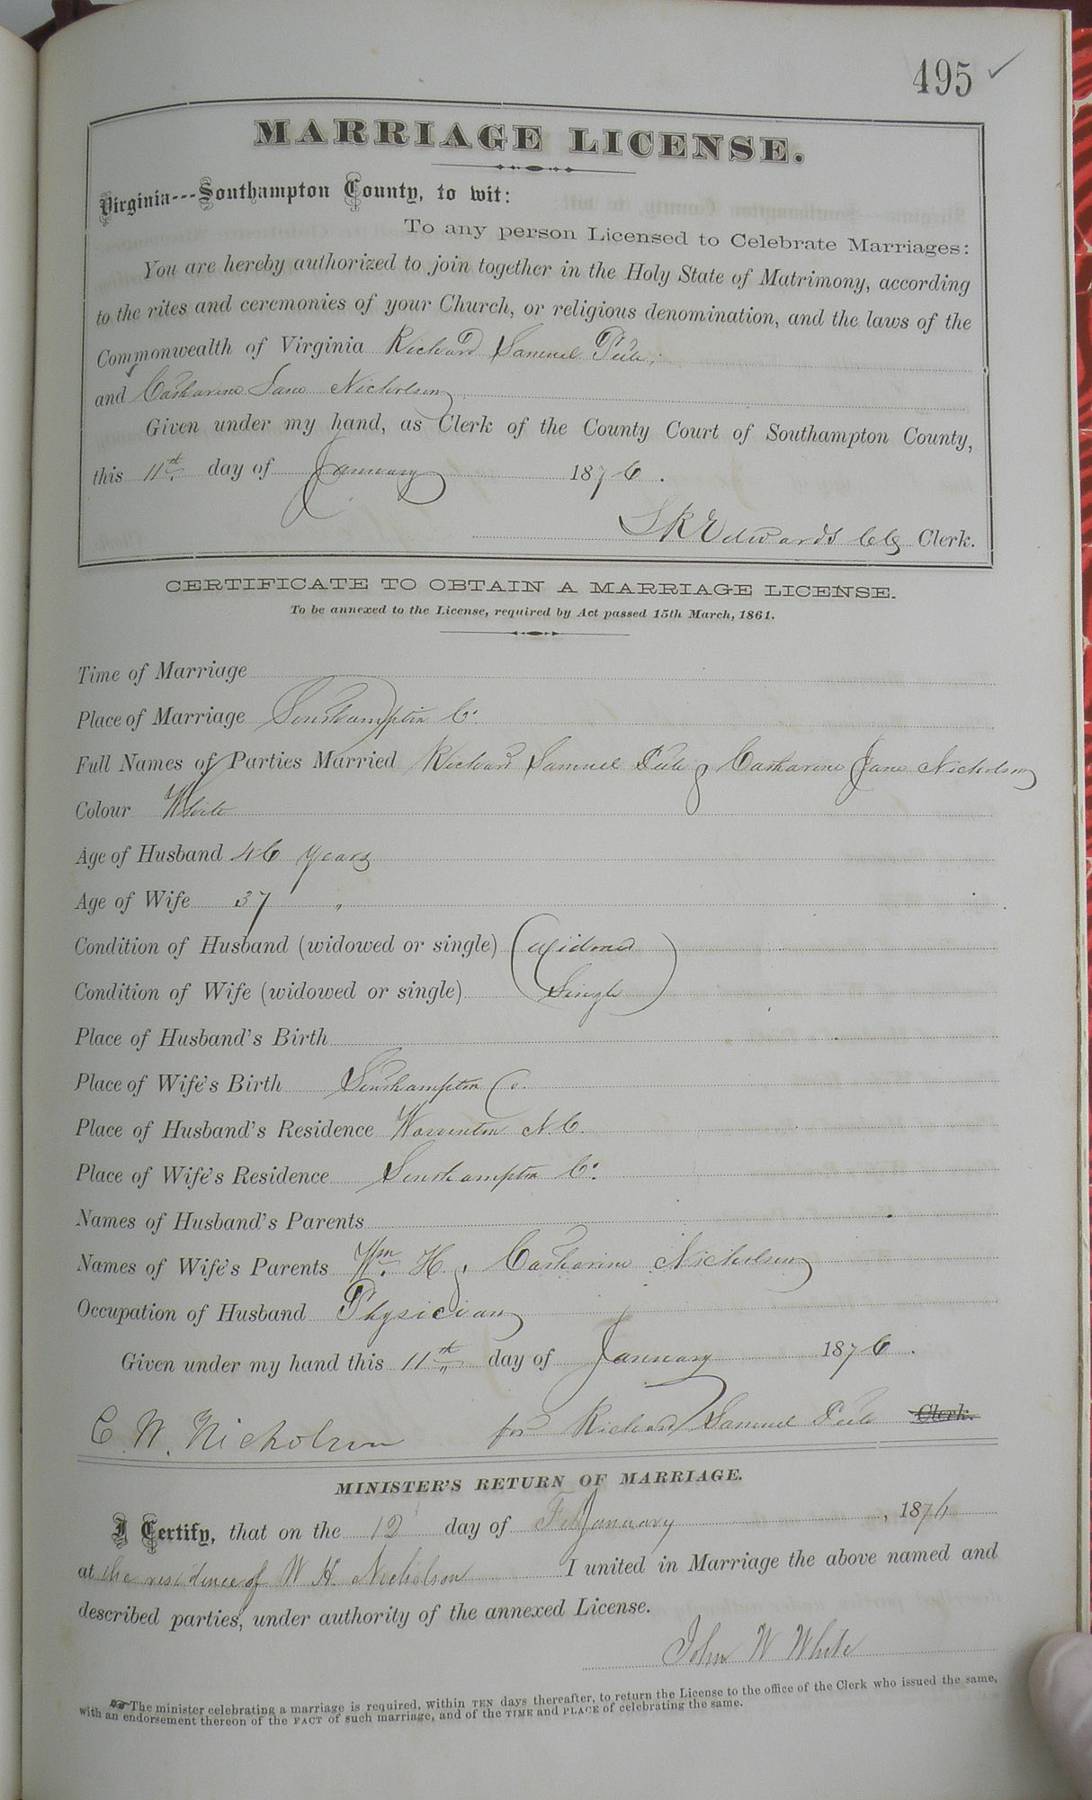 495 ✓
MARRIAGE LICENSE.
Virginia---Southampton County, to wit:
To any person Licensed to Celebrate Marriages:
You are hereby authorized to join together in the Holy State of Matrimony, according
to the rites and ceremonies of your Church, or religious denomination, and the laws of the
Commonwealth of Virginia Richard Samuel
and Catharine Jane Nicholson
Given under my hand, as Clerk of the County Court of Southampton County,
this 11th day of January 1876.
Edwards Clerk.
CERTIFICATE TO OBTAIN A MARRIAGE LICENSE.
To be annexed to the License, required by Act passed 15th March, 1861.
Time of Marriage
Place of Marriage Southampton Co.
Full Names of Parties Married Richard Samuel & Catharine Jane Nicholson
Colour White
Age of Husband 46 years
Age of Wife 37 "
Condition of Husband (widowed or single) (Widowed
Condition of Wife (widowed or single) Single)
Place of Husband's Birth
Place of Wife's Birth Southampton Co.
Place of Husband's Residence Warrenton N.C.
Place of Wife's Residence Southampton Co.
Names of Husband's Parents
Names of Wife's Parents Wm. H. & Catharine Nicholson
Occupation of Husband Physician
Given under my hand this 11th day of January 1876.
C. W. Nicholson for Richard Samuel Clerk.
MINISTER'S RETURN OF MARRIAGE.
I Certify, that on the 12 day of January, 1876
at the residence of W. H. Nicholson I united in Marriage the above named and
described parties, under authority of the annexed License.
John W White
☞ The minister celebrating a marriage is required, within TEN days thereafter, to return the License to the office of the Clerk who issued the same,
with an endorsement thereon of the FACT of such marriage, and of the TIME and PLACE of celebrating the same.